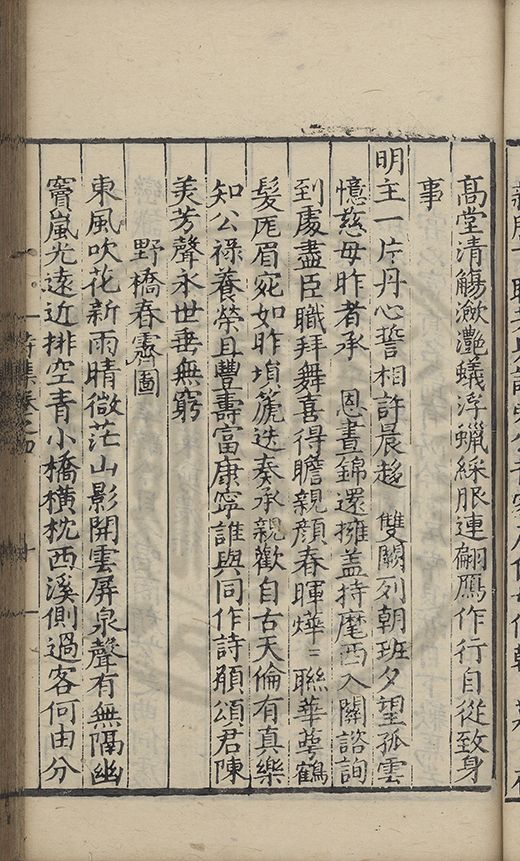 高堂清觴瀲灔蟻浮蠟綵服連翩鴈作行自從致身
事
明主一片丹心誓相許晨趍　雙闕列朝班夕望孤雲
憶慈母昨者承　恩晝錦還擁盖持麾西入關諮詢
到處盡臣職拜舞喜得瞻親顔春暉燁〻聯華萼鶴
髮厖眉宛如昨塤篪迭奏承親歡自古天倫有真樂
知公禄養榮且豐壽富康寧誰與同作詩頋頌君陳
美芳聲永世垂無窮
野橋春霽圖
東風吹花新雨晴微茫山影開雲屏泉聲有無隔幽
竇嵐光遠近排空青小橋横枕西溪側過客何由分
詩集卷之四